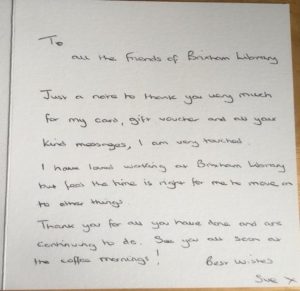 To
all the Friends of Brixham Library
Just a note to thank you very much
for my card, gift voucher and all your
kind messages, I am very touched.
I have loved working at Brixham Library
but feel the time is right for me to move on
to other things.
Thank you for all you have done and are
continuing to do. See you all soon at
the coffee mornings!
Best Wishes
Sue X